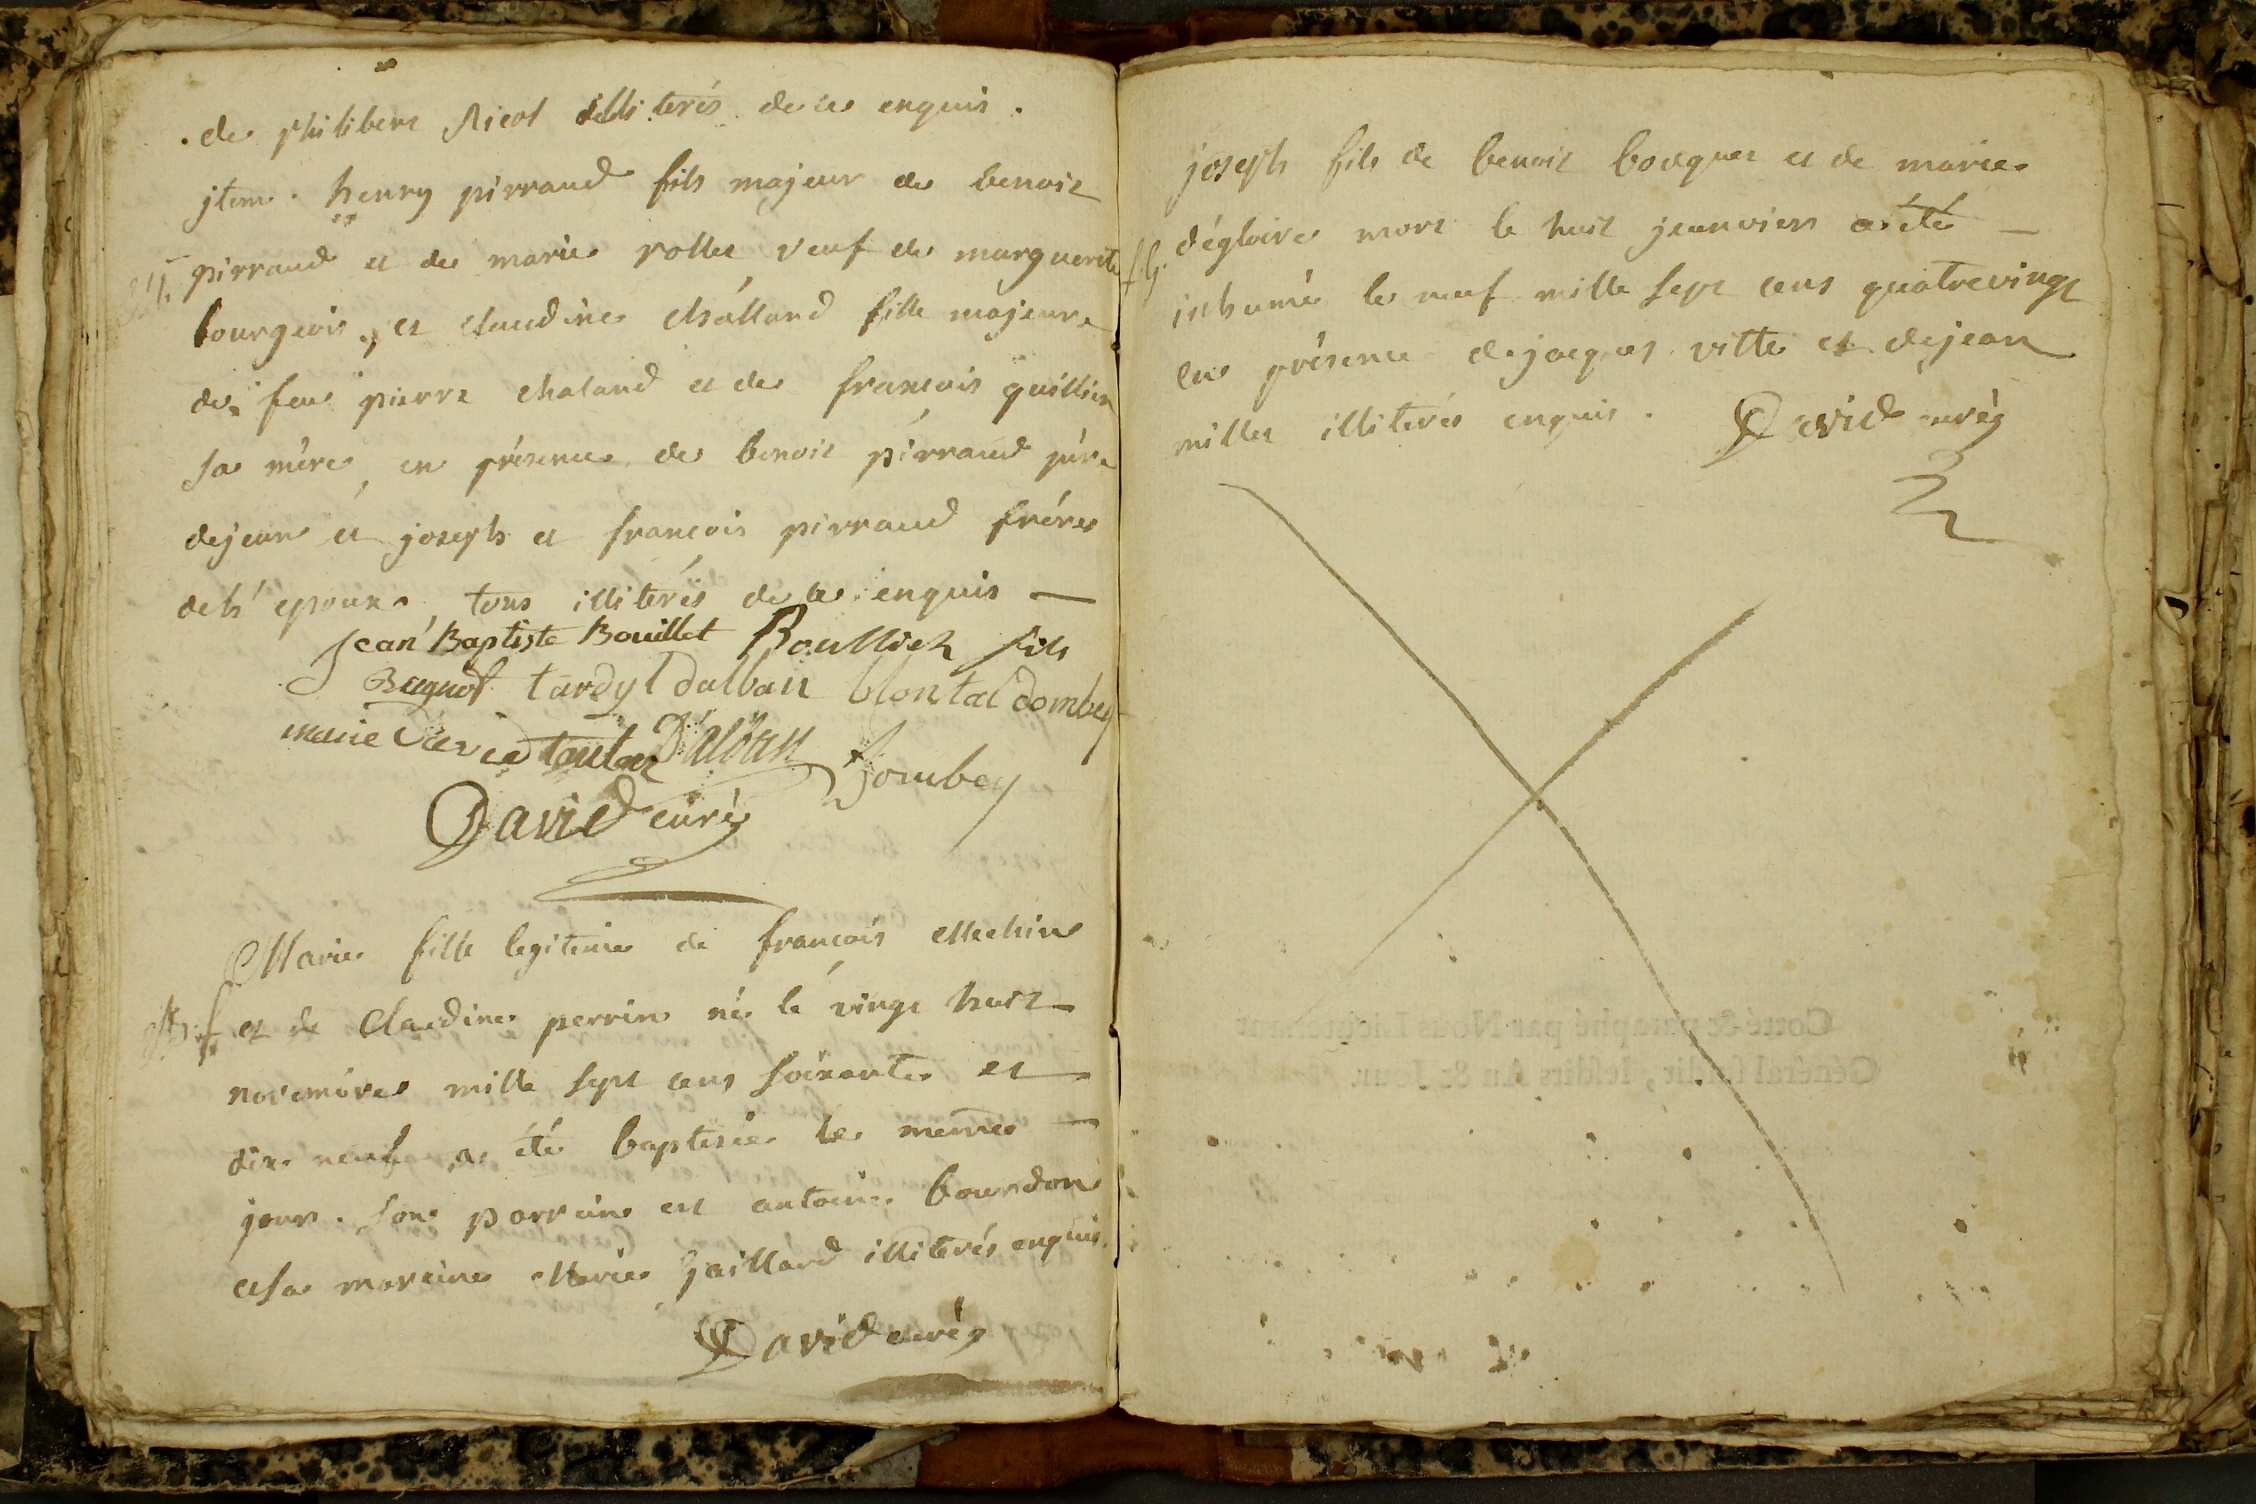 de philibert Nicol illiterés de ce enquis.
jtem. henry pirraud fils majeur de benoit
pirraud et de marie rollet veuf de marguerite
bourgeois, et claudine challand fille majeure
de feu pierre chaland et de francois guillin
sa mère, en présence de benoit pirraud père
dejean et joseph et francois pirraud fréres
de l'epoux tous illiterés de ce enquis —
Jean Baptiste Bouillet Boullier fils
Bagnot tardy Dalban Montal dombey
marie
Dalban Dombey
David curé
Marie fille legitime de francois Mechin
et de Claudine perrin né le vingt huit
novembre mille sept cent soixante et
dix neuf a été baptisée le meme —
jour. son parrain est antoine bourdon
et sa marraine Marie Gaillard illiterés enquis.
David curé
joseph fils de benoit bocquet et de marie
dégloire mort le huit jeanvier a été —
inhumé le neuf mille sept cent quatrevingt
en présence de jacques vitte et de jean
millet illiterés enquis. David curé
Cotté & paraphé par Nous Lieutenant
Général susdit, lesdits An & Jour.